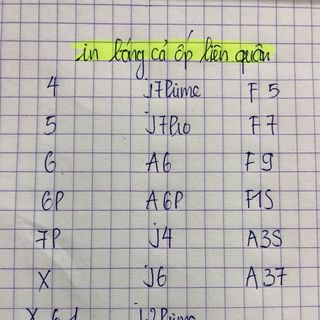 in bóng cả ốp liên quân
4 J7Prime F5
5 J7Pro F7
6 A6 F9
6P A6P F1S
7P J4 A3S
X J6 A37